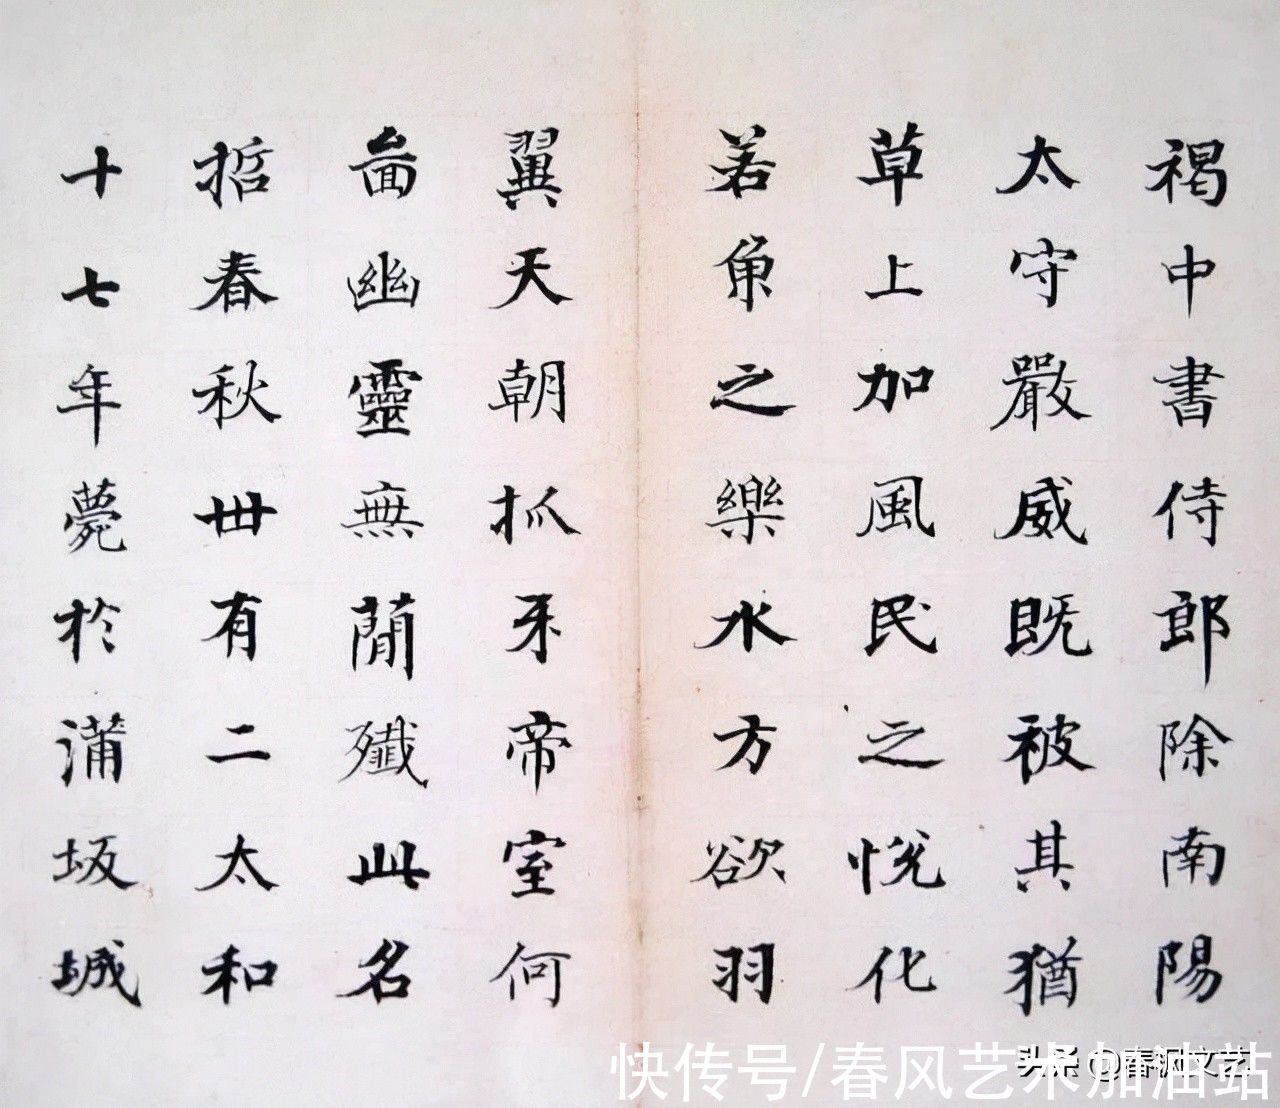 褐中書侍郎除南陽
太守嚴威既被其猶
草上加風民之悅化
若魚之樂水方欲羽
翼天朝抓牙帝室何
啚幽靈無簡殲此名
哲春秋卅有二太和
十七年薨於蒲坂城
快传号/春风艺术加油站
头条 @春风文艺